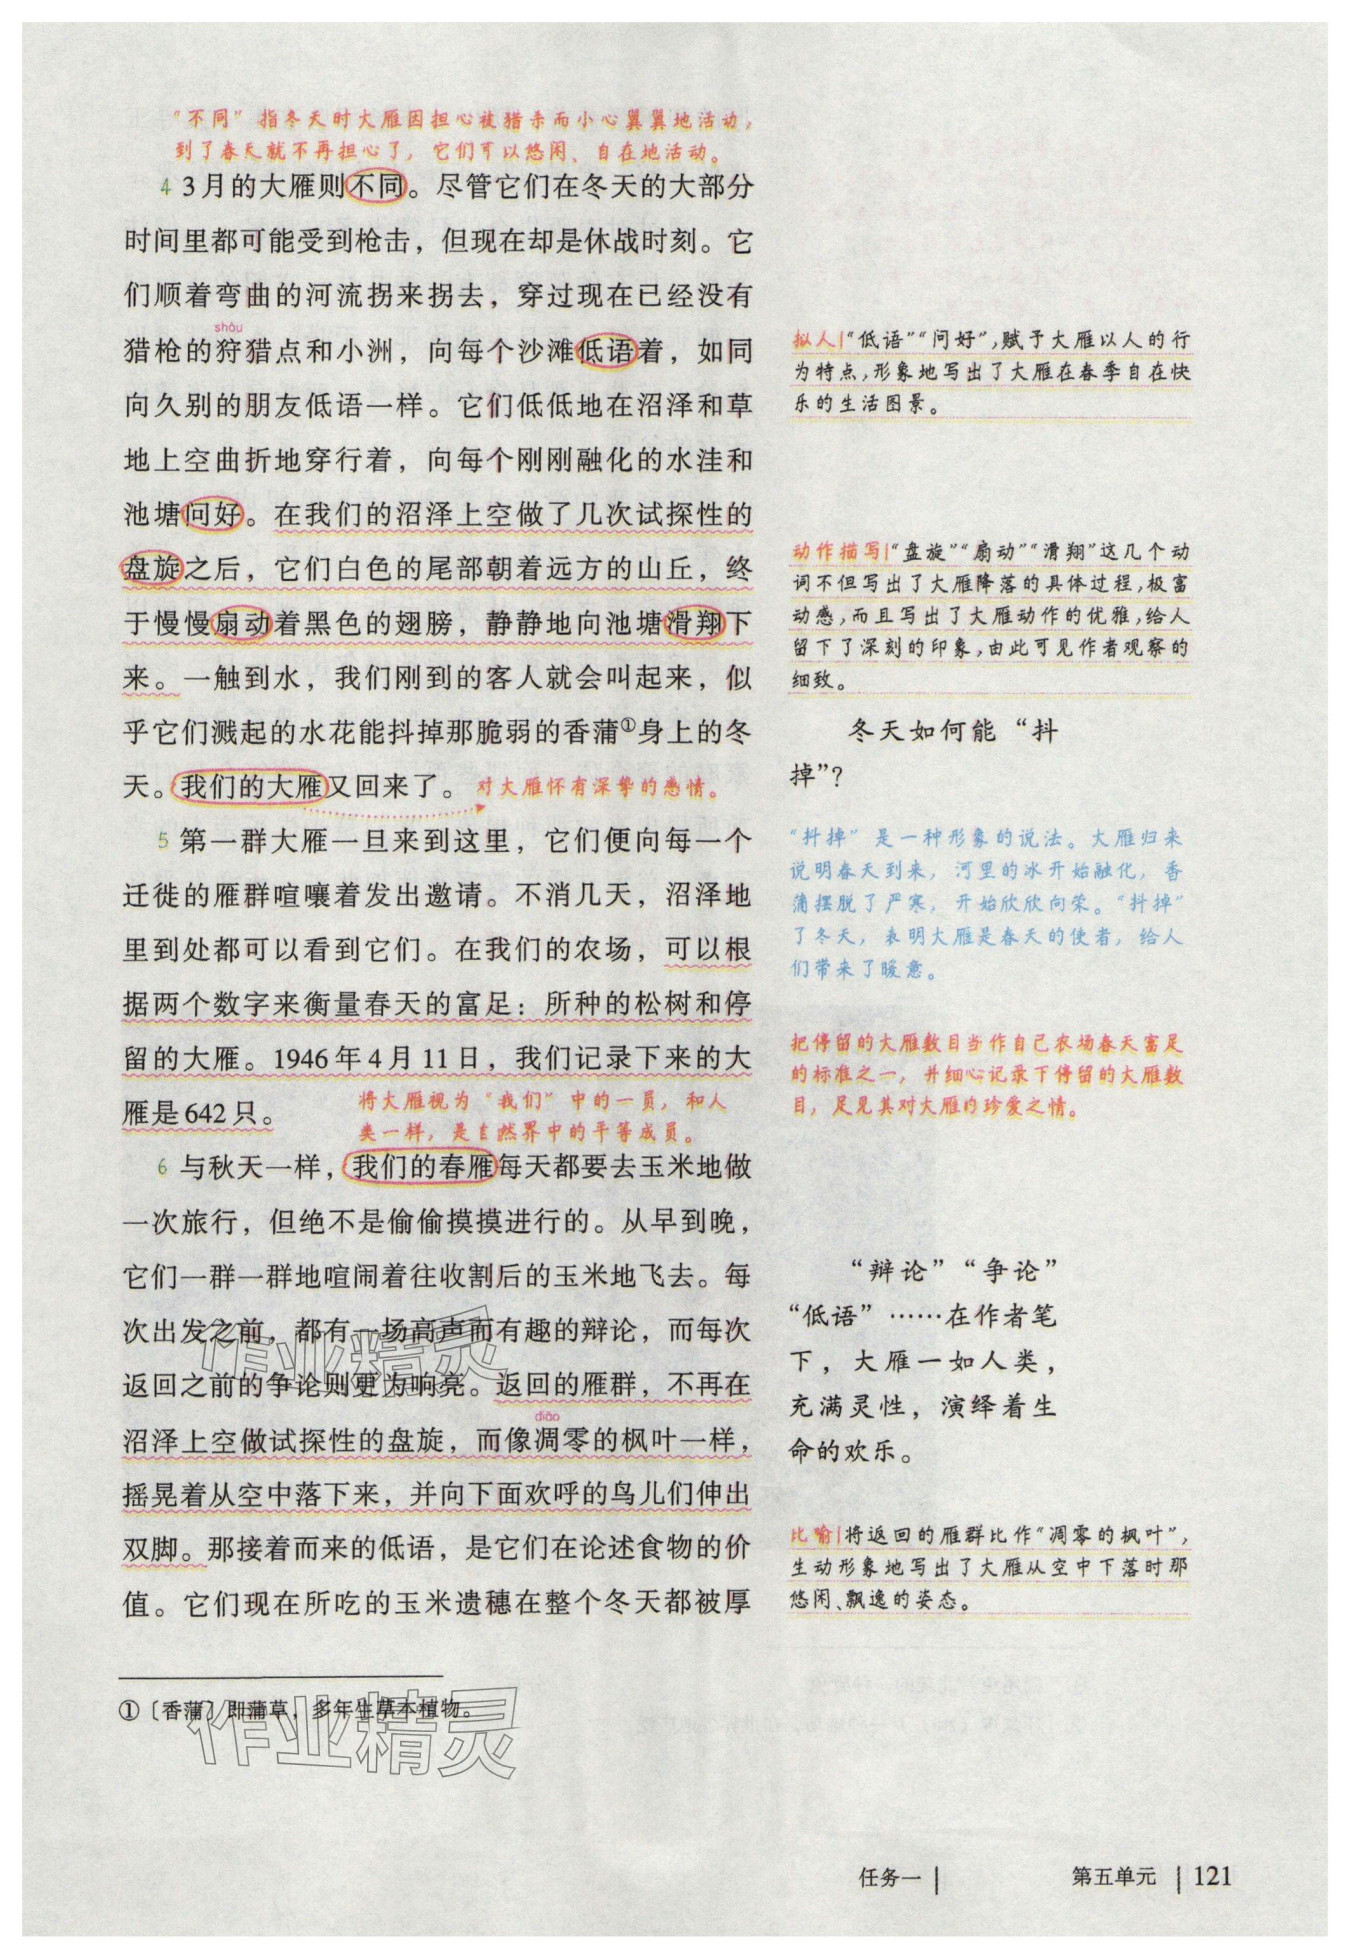 “不同”指冬天时大雁因担心被猎杀而小心翼翼地活动，
到了春天就不再担心了，它们可以悠闲、自在地活动。
4 3月的大雁则不同。尽管它们在冬天的大部分
时间里都可能受到枪击，但现在却是休战时刻。它
们顺着弯曲的河流拐来拐去，穿过现在已经没有
shòu
猎枪的狩猎点和小洲，向每个沙滩低语着，如同
向久别的朋友低语一样。它们低低地在沼泽和草
地上空曲折地穿行着，向每个刚刚融化的水洼和
池塘问好。在我们的沼泽上空做了几次试探性的
盘旋之后，它们白色的尾部朝着远方的山丘，终
于慢慢扇动着黑色的翅膀，静静地向池塘滑翔下
来。一触到水，我们刚到的客人就会叫起来，似
乎它们溅起的水花能抖掉那脆弱的香蒲①身上的冬
天。我们的大雁又回来了。 对大雁怀有深挚的感情。
5 第一群大雁一旦来到这里，它们便向每一个
迁徙的雁群喧嚷着发出邀请。不消几天，沼泽地
里到处都可以看到它们。在我们的农场，可以根
据两个数字来衡量春天的富足：所种的松树和停
留的大雁。1946年4月11日，我们记录下来的大
雁是642只。
将大雁视为“我们”中的一员，和人
类一样，是自然界中的平等成员。
6 与秋天一样，我们的春雁每天都要去玉米地做
一次旅行，但绝不是偷偷摸摸进行的。从早到晚，
它们一群一群地喧闹着往收割后的玉米地飞去。每
次出发之前，都有一场高声而有趣的辩论，而每次
返回之前的争论则更为响亮。返回的雁群，不再在
diāo
沼泽上空做试探性的盘旋，而像凋零的枫叶一样，
摇晃着从空中落下来，并向下面欢呼的鸟儿们伸出
双脚。那接着而来的低语，是它们在论述食物的价
值。它们现在所吃的玉米遗穗在整个冬天都被厚
拟人|“低语”“问好”,赋予大雁以人的行
为特点,形象地写出了大雁在春季自在快
乐的生活图景。
动作描写|“盘旋”“扇动”“滑翔”这几个动
词不但写出了大雁降落的具体过程,极富
动感,而且写出了大雁动作的优雅,给人
留下了深刻的印象,由此可见作者观察的
细致。
冬天如何能“抖
掉”？
“抖掉”是一种形象的说法。大雁归来
说明春天到来，河里的冰开始融化，香
蒲摆脱了严寒，开始欣欣向荣。“抖掉”
了冬天，表明大雁是春天的使者，给人
们带来了暖意。
把停留的大雁数目当作自己农场春天富足
的标准之一，并细心记录下停留的大雁数
目，足见其对大雁的珍爱之情。
“辩论”“争论”
“低语”……在作者笔
下，大雁一如人类，
充满灵性，演绎着生
命的欢乐。
比喻|将返回的雁群比作“凋零的枫叶”,
生动形象地写出了大雁从空中下落时那
悠闲、飘逸的姿态。
①〔香蒲〕即蒲草，多年生草本植物。
作业精灵
作业精灵
任务一 | 第五单元 | 121